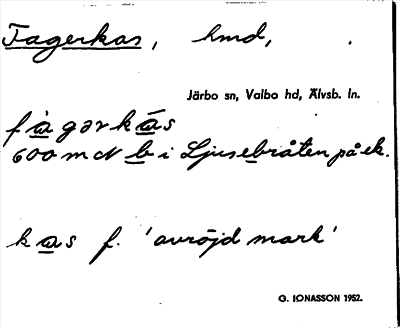 Fagerkas, hmd,
Järbo sn, Valbo hd, Älvsb. ln.
fàgərkás
600 m N b i Ljusebråten på ek.
kas f. 'avröjd mark'
G. IONASSON 1952.